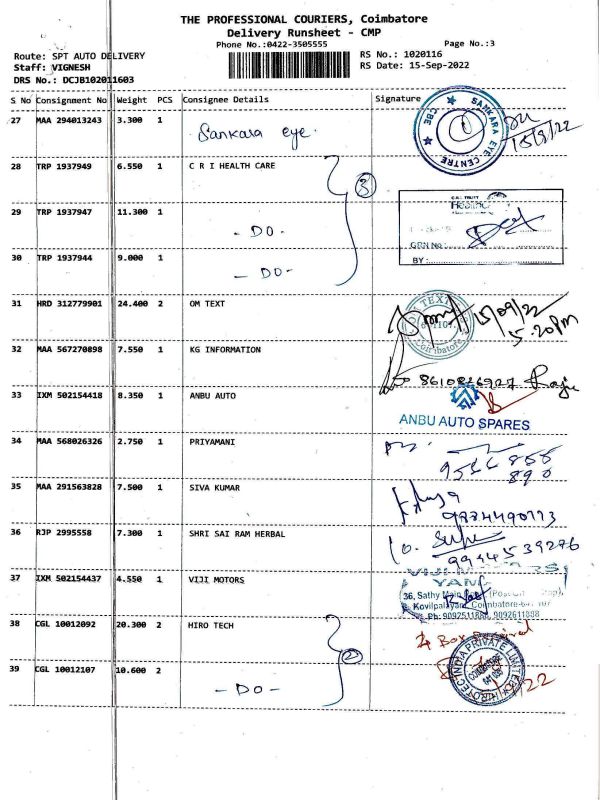 THE PROFESSIONAL COURIERS, Coimbatore
Delivery Runsheet - CMP
Phone No.:0422-3505555
Page No.:3
Route: SPT AUTO DELIVERY
RS No.: 1020116
Staff: VIGNESH
RS Date: 15-Sep-2022
DRS No.: DCJB102011603
S No Consignment No Weight PCS Consignee Details Signature
27 MAA 294013243 3.300 1 Sankara eye.
SANKARA EYE CENTRE CBE
15/9/22
28 TRP 1937949 6.550 1 C R I HEALTH CARE
3
29 TRP 1937947 11.300 1 - DO -
GRN No:
BY:
30 TRP 1937944 9.000 1 - DO -
31 HRD 312779901 24.400 2 OM TEXT
Coimbatore
15/09/22
5.20PM
32 MAA 567270898 7.550 1 KG INFORMATION
33 IXM 502154418 8.350 1 ANBU AUTO
ANBU AUTO SPARES
34 MAA 568026326 2.750 1 PRIYAMANI
35 MAA 291563828 7.500 1 SIVA KUMAR
36 RJP 2995558 7.300 1 SHRI SAI RAM HERBAL
9994539276
37 IXM 502154437 4.550 1 VIJI MOTORS
36, Sathy Main
Kovilpalayam, Coimbatore-641 107
Ph: 9092511888, 9092611888
38 CGL 10012092 20.300 2 HIRO TECH
4 Box Received
2
39 CGL 10012107 10.600 2 - DO -
INDIA PRIVATE LIMITED